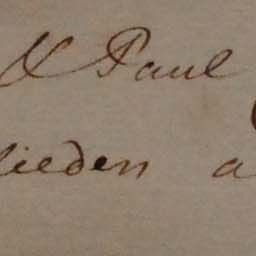 & Paul
lieden a